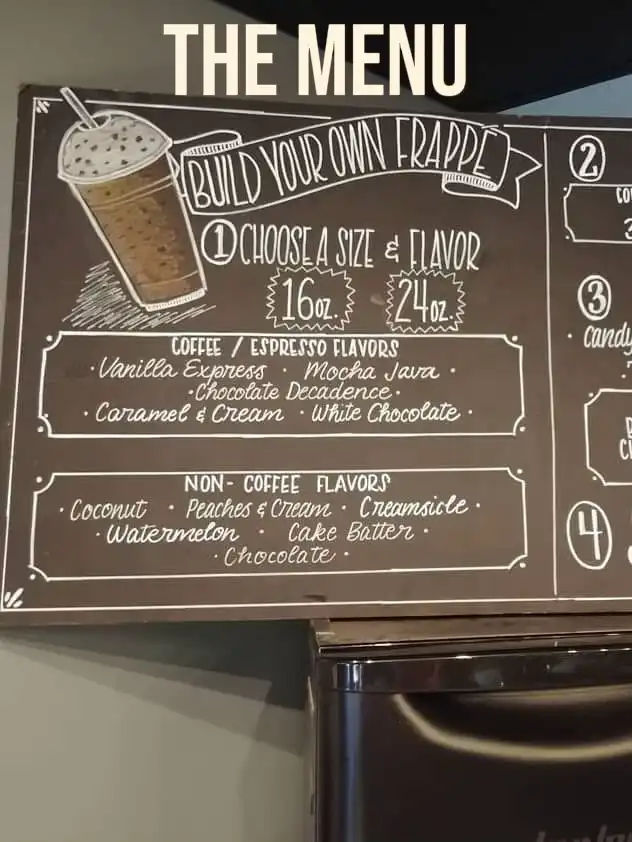 THE MENU
BUILD YOUR OWN FRAPPÉ
1 CHOOSE A SIZE & FLAVOR
16oz. 24oz.
COFFEE / ESPRESSO FLAVORS
· Vanilla Express · Mocha Java ·
· Chocolate Decadence ·
· Caramel & Cream · White Chocolate ·
NON- COFFEE FLAVORS
· Coconut · Peaches & Cream · Creamsicle ·
· Watermelon · Cake Batter ·
· Chocolate ·
2
3
· Candy
4